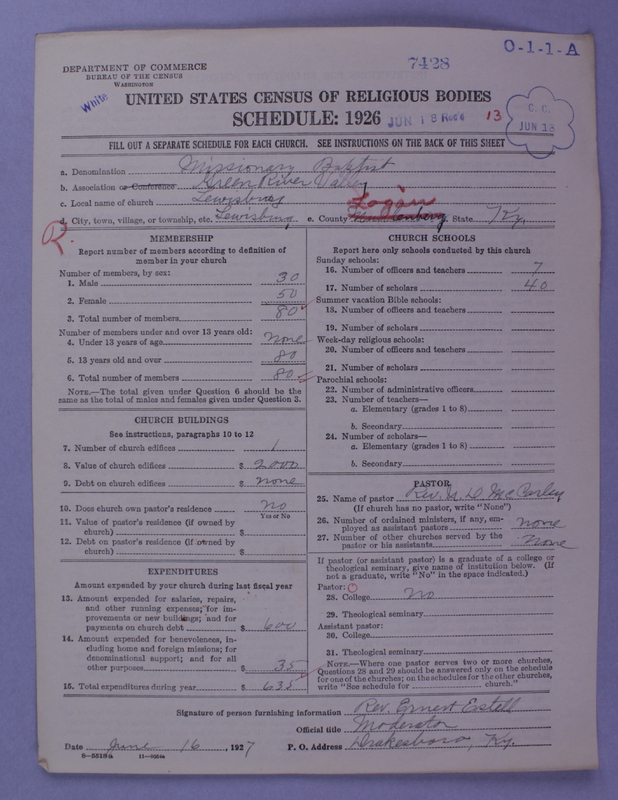 O-1-1-A
7428
DEPARTMENT OF COMMERCE
BUREAU OF THE CENSUS
WASHINGTON
White
UNITED STATES CENSUS OF RELIGIOUS BODIES
SCHEDULE: 1926
JUN 18 13
C. C.
JUN 18
FILL OUT A SEPARATE SCHEDULE FOR EACH CHURCH. SEE INSTRUCTIONS ON THE BACK OF THIS SHEET
a. Denomination Missionary Baptist
b. Association or Conference Green River Valley
c. Local name of church Lewisburg
Logan
d. City, town, village, or township, etc. Lewisburg e. County Muhlenberg State Ky.
R.
MEMBERSHIP
Report number of members according to definition of
member in your church
Number of members, by sex:
1. Male 30
2. Female 50
3. Total number of members 80
Number of members under and over 13 years old:
4. Under 13 years of age none
5. 13 years old and over 80
6. Total number of members 80
NOTE.—The total given under Question 6 should be the
same as the total of males and females given under Question 3.
CHURCH BUILDINGS
See instructions, paragraphs 10 to 12
7. Number of church edifices 1
8. Value of church edifices $ 2000
9. Debt on church edifices $ none
10. Does church own pastor's residence no
Yes or No
11. Value of pastor's residence (if owned by
church) $
12. Debt on pastor's residence (if owned by
church) $
EXPENDITURES
Amount expended by your church during last fiscal year
13. Amount expended for salaries, repairs,
and other running expenses; for im-
provements or new buildings; and for
payments on church debt $ 600
14. Amount expended for benevolences, in-
cluding home and foreign missions; for
denominational support; and for all
other purposes $ 35
15. Total expenditures during year $ 635
CHURCH SCHOOLS
Report here only schools conducted by this church
Sunday schools:
16. Number of officers and teachers 7
17. Number of scholars 40
Summer vacation Bible schools:
18. Number of officers and teachers
19. Number of scholars
Week-day religious schools:
20. Number of officers and teachers
21. Number of scholars
Parochial schools:
22. Number of administrative officers
23. Number of teachers—
a. Elementary (grades 1 to 8)
b. Secondary
24. Number of scholars—
a. Elementary (grades 1 to 8)
b. Secondary
PASTOR
25. Name of pastor Rev. McCarley
(If church has no pastor, write "None")
26. Number of ordained ministers, if any, em-
ployed as assistant pastors none
27. Number of other churches served by the
pastor or his assistants none
If pastor (or assistant pastor) is a graduate of a college or
theological seminary, give name of institution below. (If
not a graduate, write "No" in the space indicated.)
Pastor:
28. College no
29. Theological seminary
Assistant pastor:
30. College
31. Theological seminary
NOTE.—Where one pastor serves two or more churches,
Questions 28 and 29 should be answered only on the schedule
for one of the churches; on the schedules for the other churches,
write "See schedule for church."
Signature of person furnishing information Rev. Ernest Estell
Official title Moderator
Date June 16, 1927 P. O. Address Drakesboro, Ky.